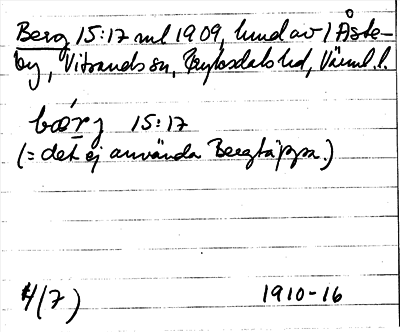 Berg 15:17 ml 1909, hund av 1 Åste-
by, Vitsands sn, Fryksdals hd, Värml. l.
bærj 15:17
(= det ej använda Bergtäppa.)
4/(7) 1910-16